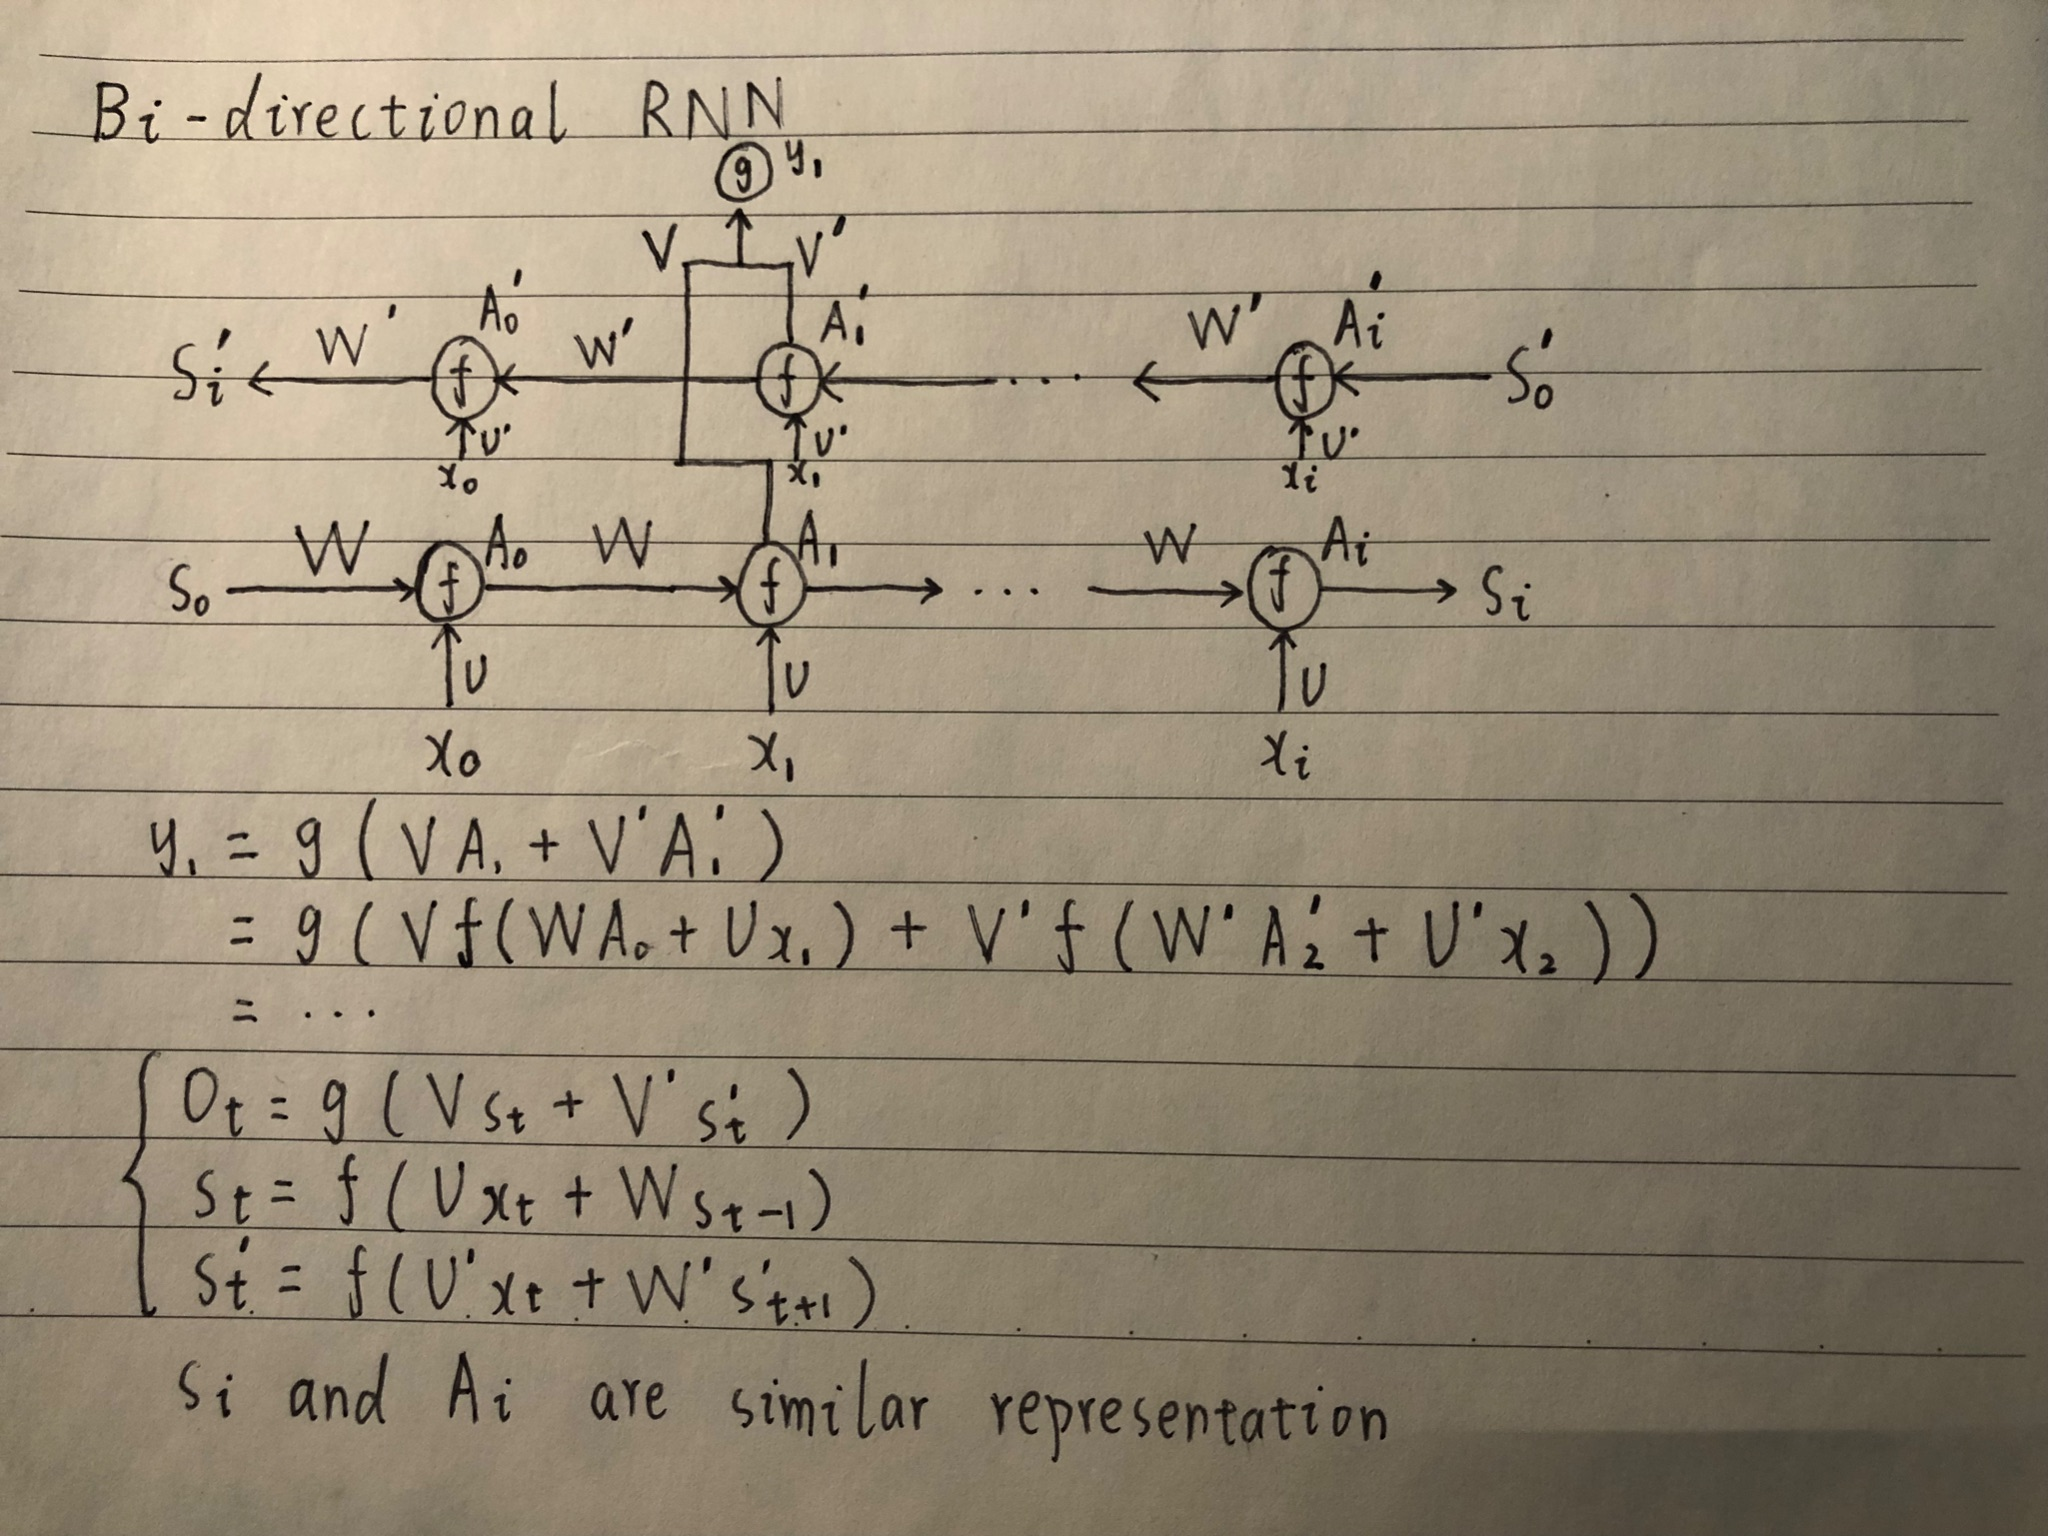 Bi-directional RNN
g y₁
V V'
Sᵢ' W' A₀' f W' A₁' f ... W' Aᵢ' f S₀'
U' U' U'
x₀ x₁ xᵢ
S₀ W f A₀ W f A₁ ... W f Aᵢ Sᵢ
U U U
x₀ x₁ xᵢ
y₁ = g ( V A₁ + V' A₁' )
= g ( V f ( W A₀ + U x₁ ) + V' f ( W' A₂' + U' x₂ ) )
= ...
Oₜ = g ( V sₜ + V' sₜ' )
sₜ = f ( U xₜ + W sₜ₋₁ )
sₜ' = f ( U' xₜ + W' s'ₜ₊₁ )
sᵢ and Aᵢ are similar representation